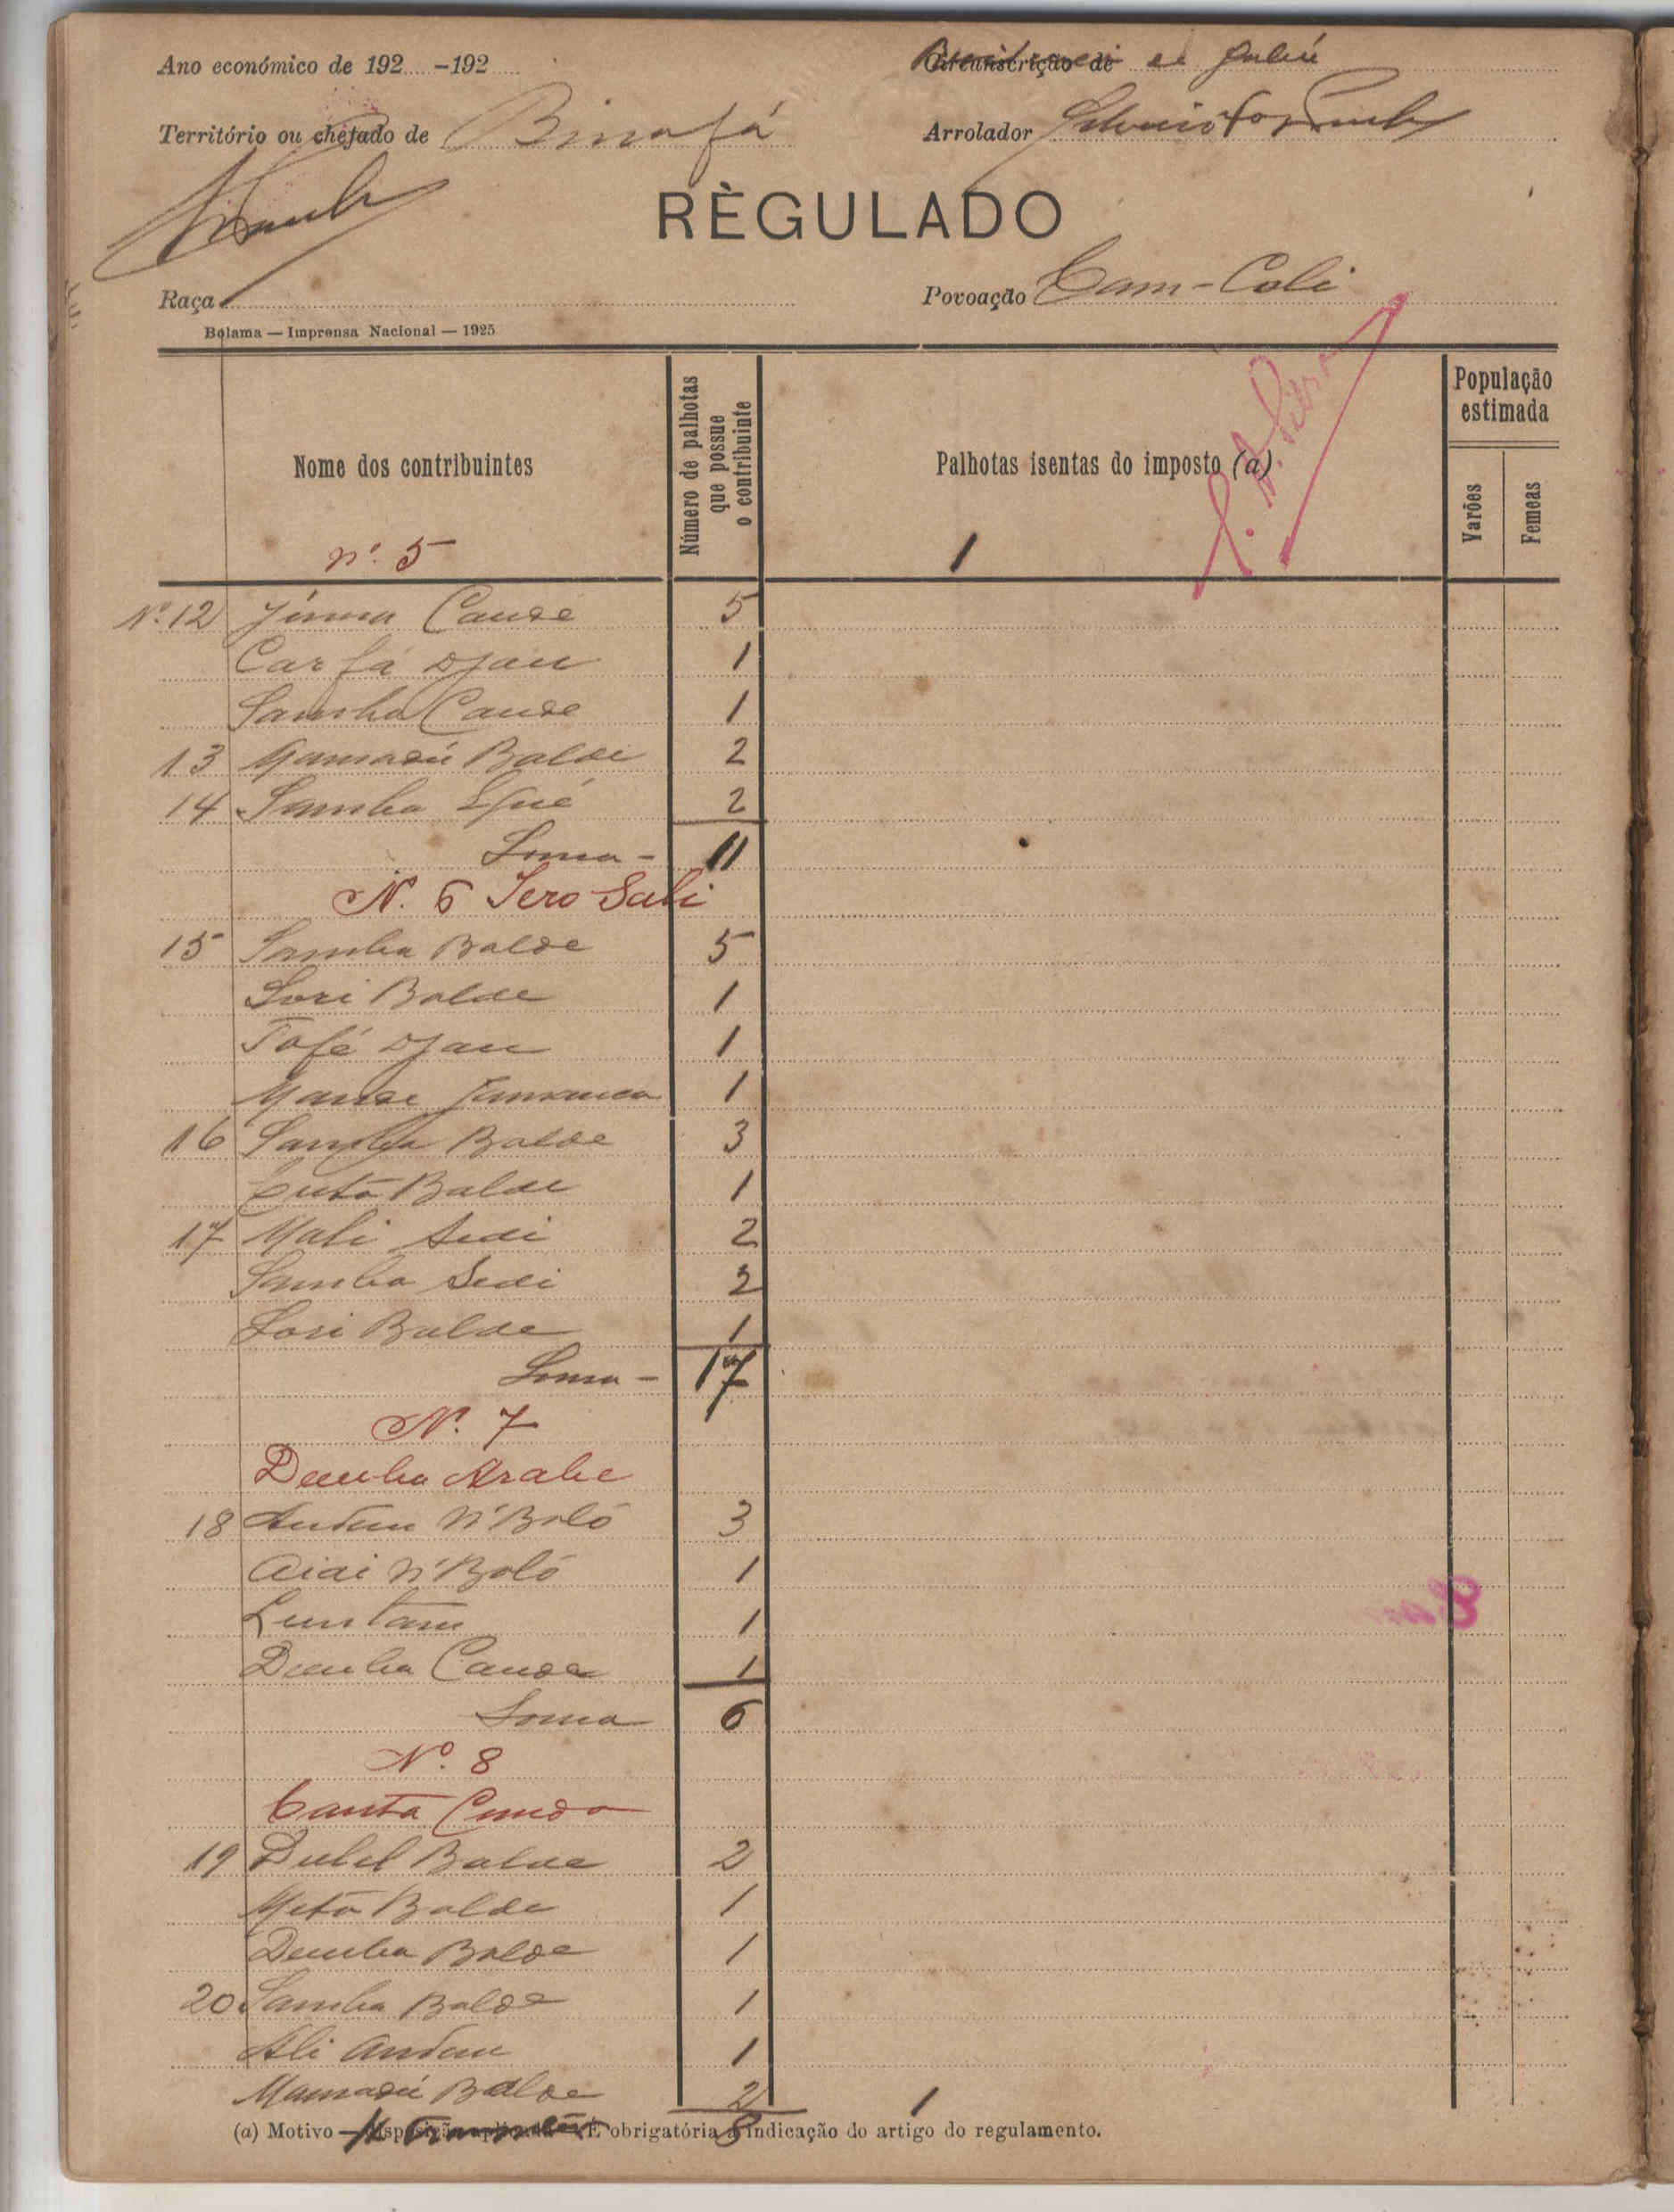 Ano económico de 192 -192
Circunscrição de
Território ou chefado de Binafá
Arrolador
RÈGULADO
Raça
Povoação Cam-Coli
Bolama — Imprensa Nacional — 1925
Nome dos contribuintes
Número de palhotas que possue o contribuinte
Palhotas isentas do imposto (a)
População estimada
Varões
Femeas
nº 5
1
Nº 12 Cande 5
Carfá Djau 1
Samba Cande 1
13 Mamadú Balde 2
14 Samba 2
Soma - 11
N. 6 Iero Sali
15 Samba Balde 5
Sori Balde 1
Tafé Djau 1
1
16 Samba Balde 3
Balde 1
17 Mali Sedi 2
Samba Sedi 2
Sori Balde 1
Soma - 17
Nº 7
Demba Arabe
18 N'Boló 3
Aiai N'Boló 1
1
Demba Cande 1
Soma 6
Nº 8
Canta Cunda
19 Balde 2
Balde 1
Demba Balde 1
20 Samba Balde 1
Ali 1
Mamadú Balde 2 1
(a) Motivo — Disposição aplicada — É obrigatória a indicação do artigo do regulamento.
8